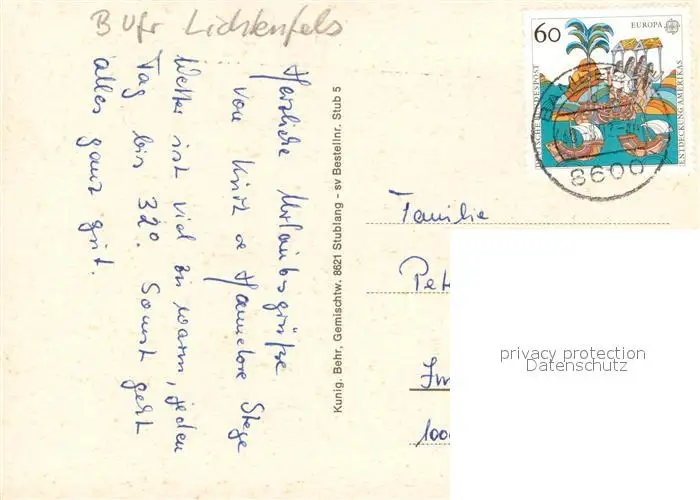 B Ofr Lichtenfels
Herzliche Urlaubsgrüße
von Kurt u Hannelore Stege
Wetter ist viel zu warm, jeden
Tag bis 32°. Sonst geht
alles ganz gut.
Kunig. Behr, Gemischtw. 8621 Stublang - sv Bestellnr. Stub 5
60
EUROPA
DEUTSCHE BUNDESPOST
ENTDECKUNG AMERIKAS
8600
Familie
Pet
Im
1000
privacy protection
Datenschutz